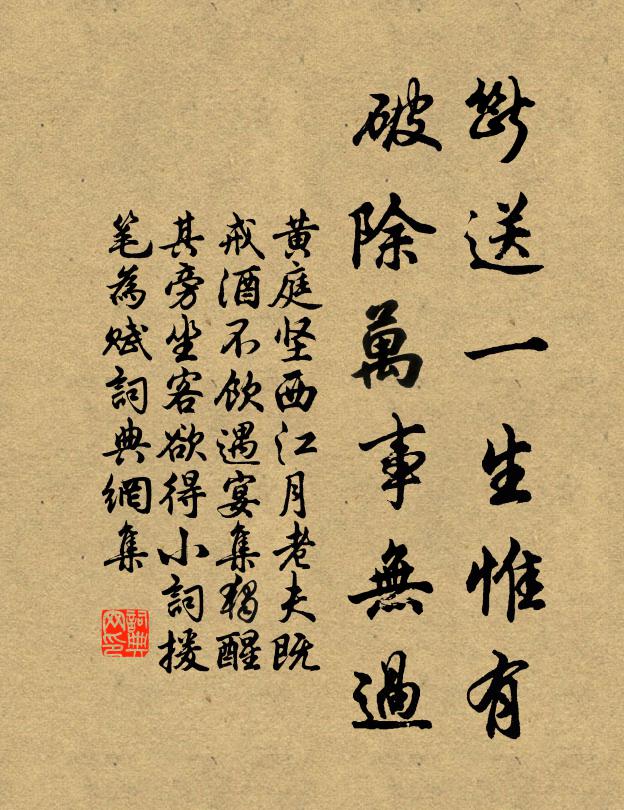 斷送一生惟有
破除萬事無過
黄庭坚西江月老夫既
戒酒不飲遇宴集獨醒
其旁坐客欲得小詞援
笔為赋詞典網集
詞典网印